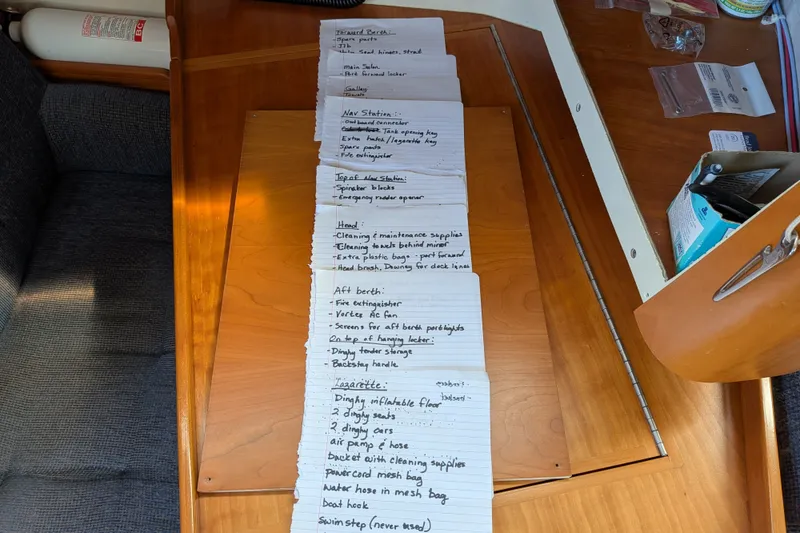 BC
Forward Berth:
- Spare parts
- Jib
Main Salon
- Port forward locker
Galley
Towels
Nav Station:-
- Outboard connector
Tank opening key
Extra hatch/lazarette key
Spare parts
- Fire extinguisher
Top of Nav Station:
- Spinaker blocks
- Emergency rudder opener
Head:
- Cleaning & maintenance supplies
- Cleaning towels behind mirror
- Extra plastic bags - port forward
- Head brush, Downy for dock lines
Aft berth:
- Fire extinguisher
- Vortex AC fan
- Screens for aft berth portlights
On top of hanging locker:
- Dinghy tender storage
- Backstay handle
Lazarette:
Dinghy inflatable floor
2 dinghy seats
2 dinghy oars
air pump & hose
bucket with cleaning supplies
powercord mesh bag
water hose in mesh bag
boat hook
swim step (never used)